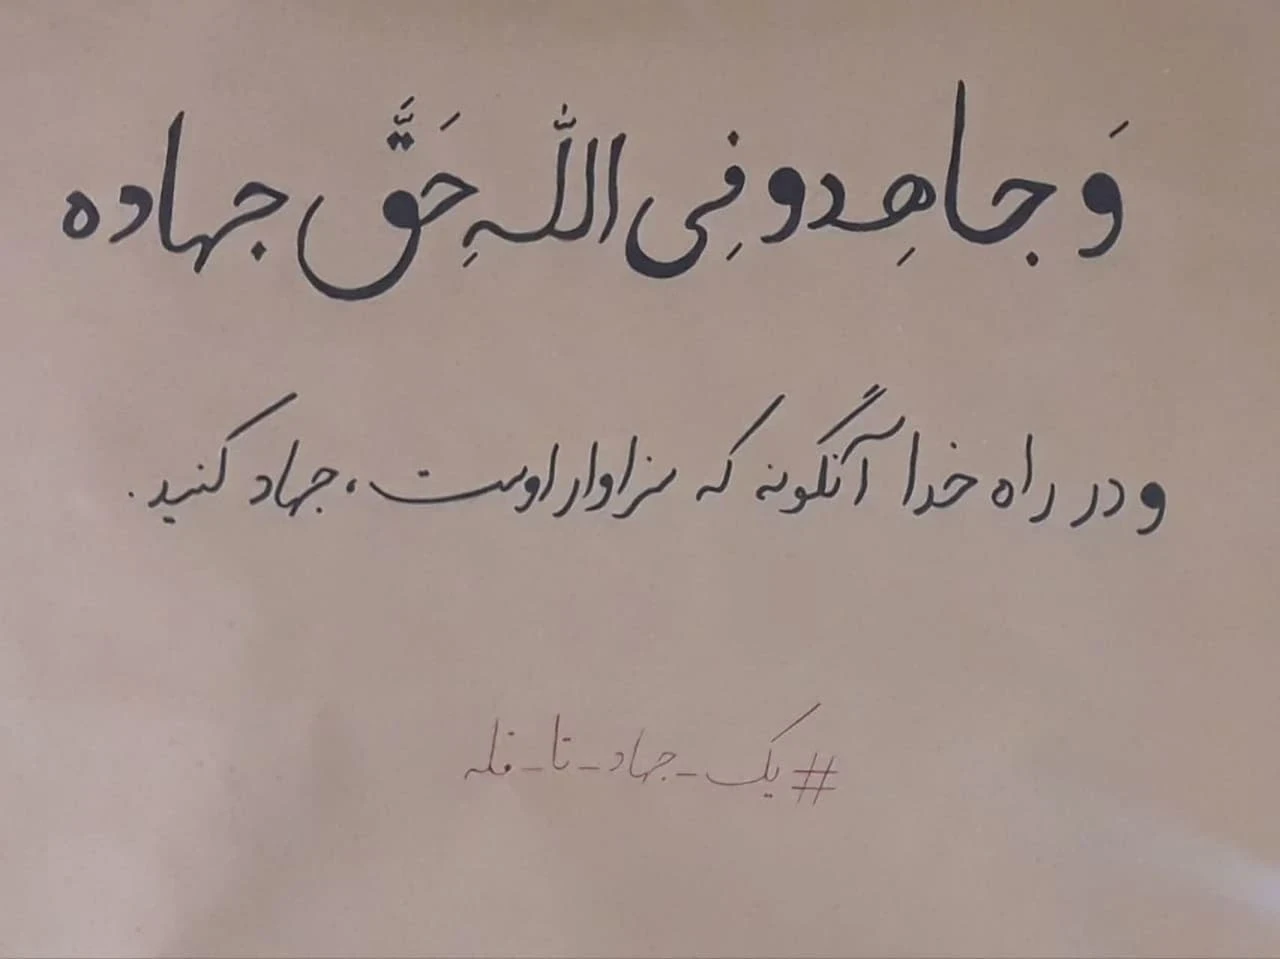 وَ جاهِدو فِی اللّٰهِ حَقَّ جهاده
و در راه خدا آنگونه که سزاوار اوست، جهاد کنید.
#یک_جهاد_تا_قله